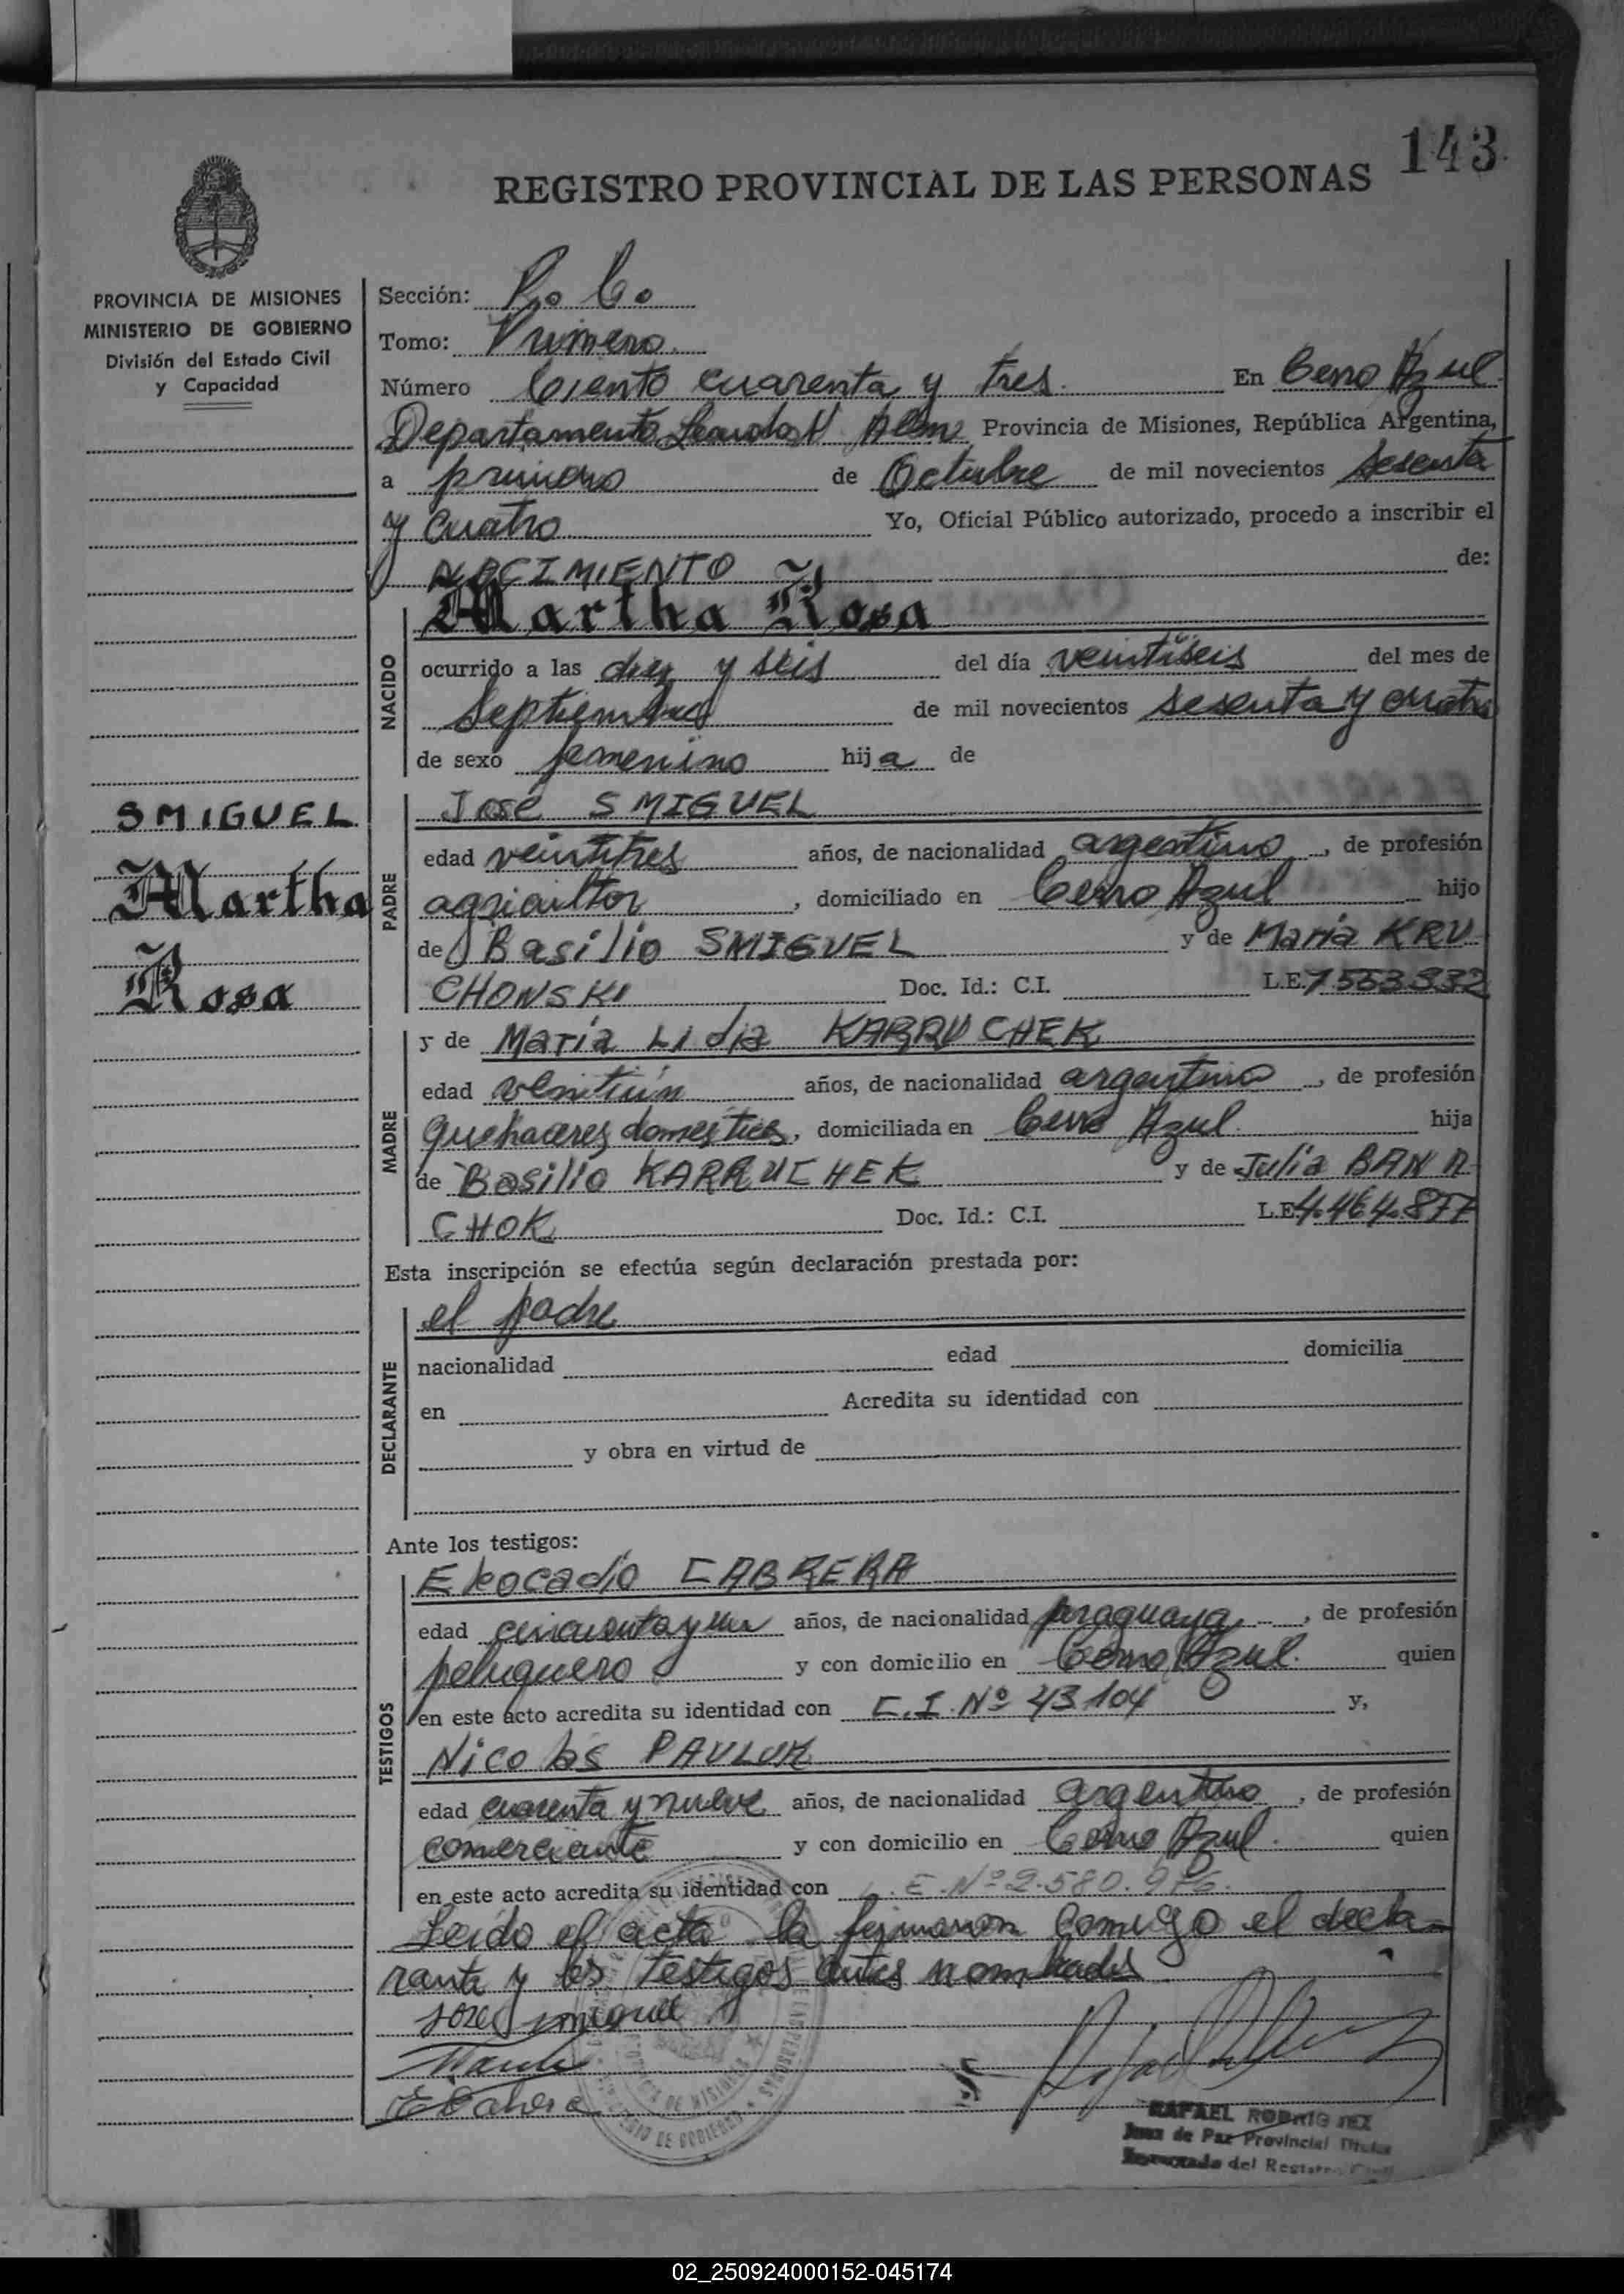 143
REGISTRO PROVINCIAL DE LAS PERSONAS
PROVINCIA DE MISIONES
MINISTERIO DE GOBIERNO
División del Estado Civil
y Capacidad
Sección:
Tomo: Primero
Número Ciento cuarenta y tres. En Cerro Azul
Departamento Leandro N. Alem Provincia de Misiones, República Argentina,
a primero de Octubre de mil novecientos sesenta
y cuatro Yo, Oficial Público autorizado, procedo a inscribir el
NACIMIENTO de:
NACIDO
Martha Rosa
ocurrido a las diez y seis del día veintiseis del mes de
Septiembre de mil novecientos sesenta y cuatro
de sexo femenino hija de
SMIGUEL
Martha
Rosa
PADRE
José SMIGUEL
edad veintitres años, de nacionalidad argentino, de profesión
agricultor, domiciliado en Cerro Azul hijo
de Basilio SMIGUEL y de Maria KRU
CHONSKI Doc. Id.: C.I. L.E. 7.553.932
MADRE
y de Maria Lidia KARRUCHEK
edad años, de nacionalidad argentina, de profesión
Quehaceres domésticos, domiciliada en Cerro Azul. hija
de Basilio KARRUCHEK y de Julia BAN A
CHOK Doc. Id.: C.I. L.E. 4.464.877
Esta inscripción se efectúa según declaración prestada por:
DECLARANTE
el padre
nacionalidad edad domicilia
en Acredita su identidad con
y obra en virtud de
Ante los testigos:
TESTIGOS
Eleocadio CABRERA
edad cincuenta y un años, de nacionalidad paraguaya, de profesión
peluquero y con domicilio en Cerro Azul. quien
en este acto acredita su identidad con C.I. Nº 43.104 y,
Nicolas PAVLUK
edad cuarenta y nueve años, de nacionalidad argentino, de profesión
comerciante y con domicilio en Cerro Azul. quien
en este acto acredita su identidad con L.E. Nº 2.580.976.
Leido el acta la firmaron comigo el decla-
rante y los testigos antes nombrados
Jose Smiguel
RAFAEL RODRIGUEZ
Juez de Paz Provincial Titular
Encargado del Registro Civil
02_250924000152-045174